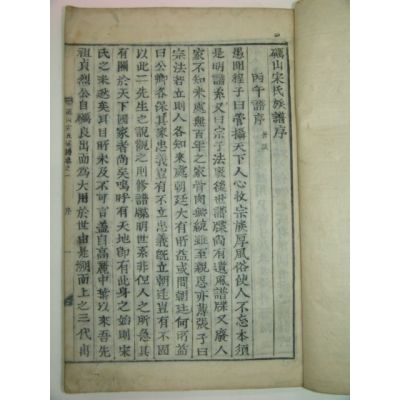 礪山宋氏族譜序
丙午譜序
愚聞程子曰管攝天下人心收宗族厚風俗使人不忘本須
是明譜系又曰宗子法廢後世譜牒尚有遺風譜牒又廢人
家不知來處無百年之家骨肉無統雖至親恩亦薄張子曰
宗法若立則人各知來處朝廷大有所益或問朝廷何所益
曰公卿各保其家忠義豈有不立忠義旣立朝廷豈有不固
以此二先生之說觀之則修譜牒明世系非但人之所急其
有關於天下國家者尚矣嗚呼有天地卽有此身之始則宋
氏之來悠矣耳目所未及不可言盖自高麗中葉以來吾先
祖貞烈公自礪良出而爲大用於世由是溯而上之三代
礪山宋氏族譜卷之一 序 一